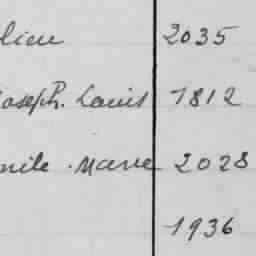 lien 2035
Joseph. Louis 1812
mile. Marie 2028
1936